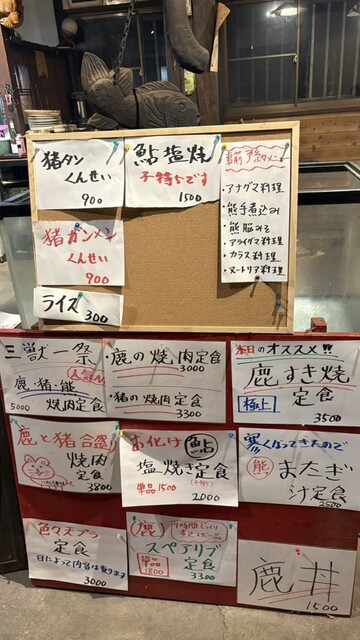 猪タン
くんせい
900
鮎塩焼
子持ちです
1500
・アナグマ料理
・熊手煮込み
・熊脳みそ
・アライグマ料理
・カラス料理
・ヌートリア料理
猪ガンメン
くんせい
900
ライス 300
三獣一祭
人気No.1
鹿・猪・熊
5000 焼肉定食
・鹿の焼肉定食
3000
・猪の焼肉定食
3300
本日のオススメ!!
鹿すき焼
極上 定食
3500
鹿と猪合盛
焼肉
定食
3800
お化け鮎
塩焼き定食
(子持ち)
単品1500
2000
寒くなってきたので
熊 またぎ
汁定食
2500
色々天プラ
定食
日によって内容は異なります
3000
鹿
スペアリブ
単品 1800 定食
3300
鹿丼
1500